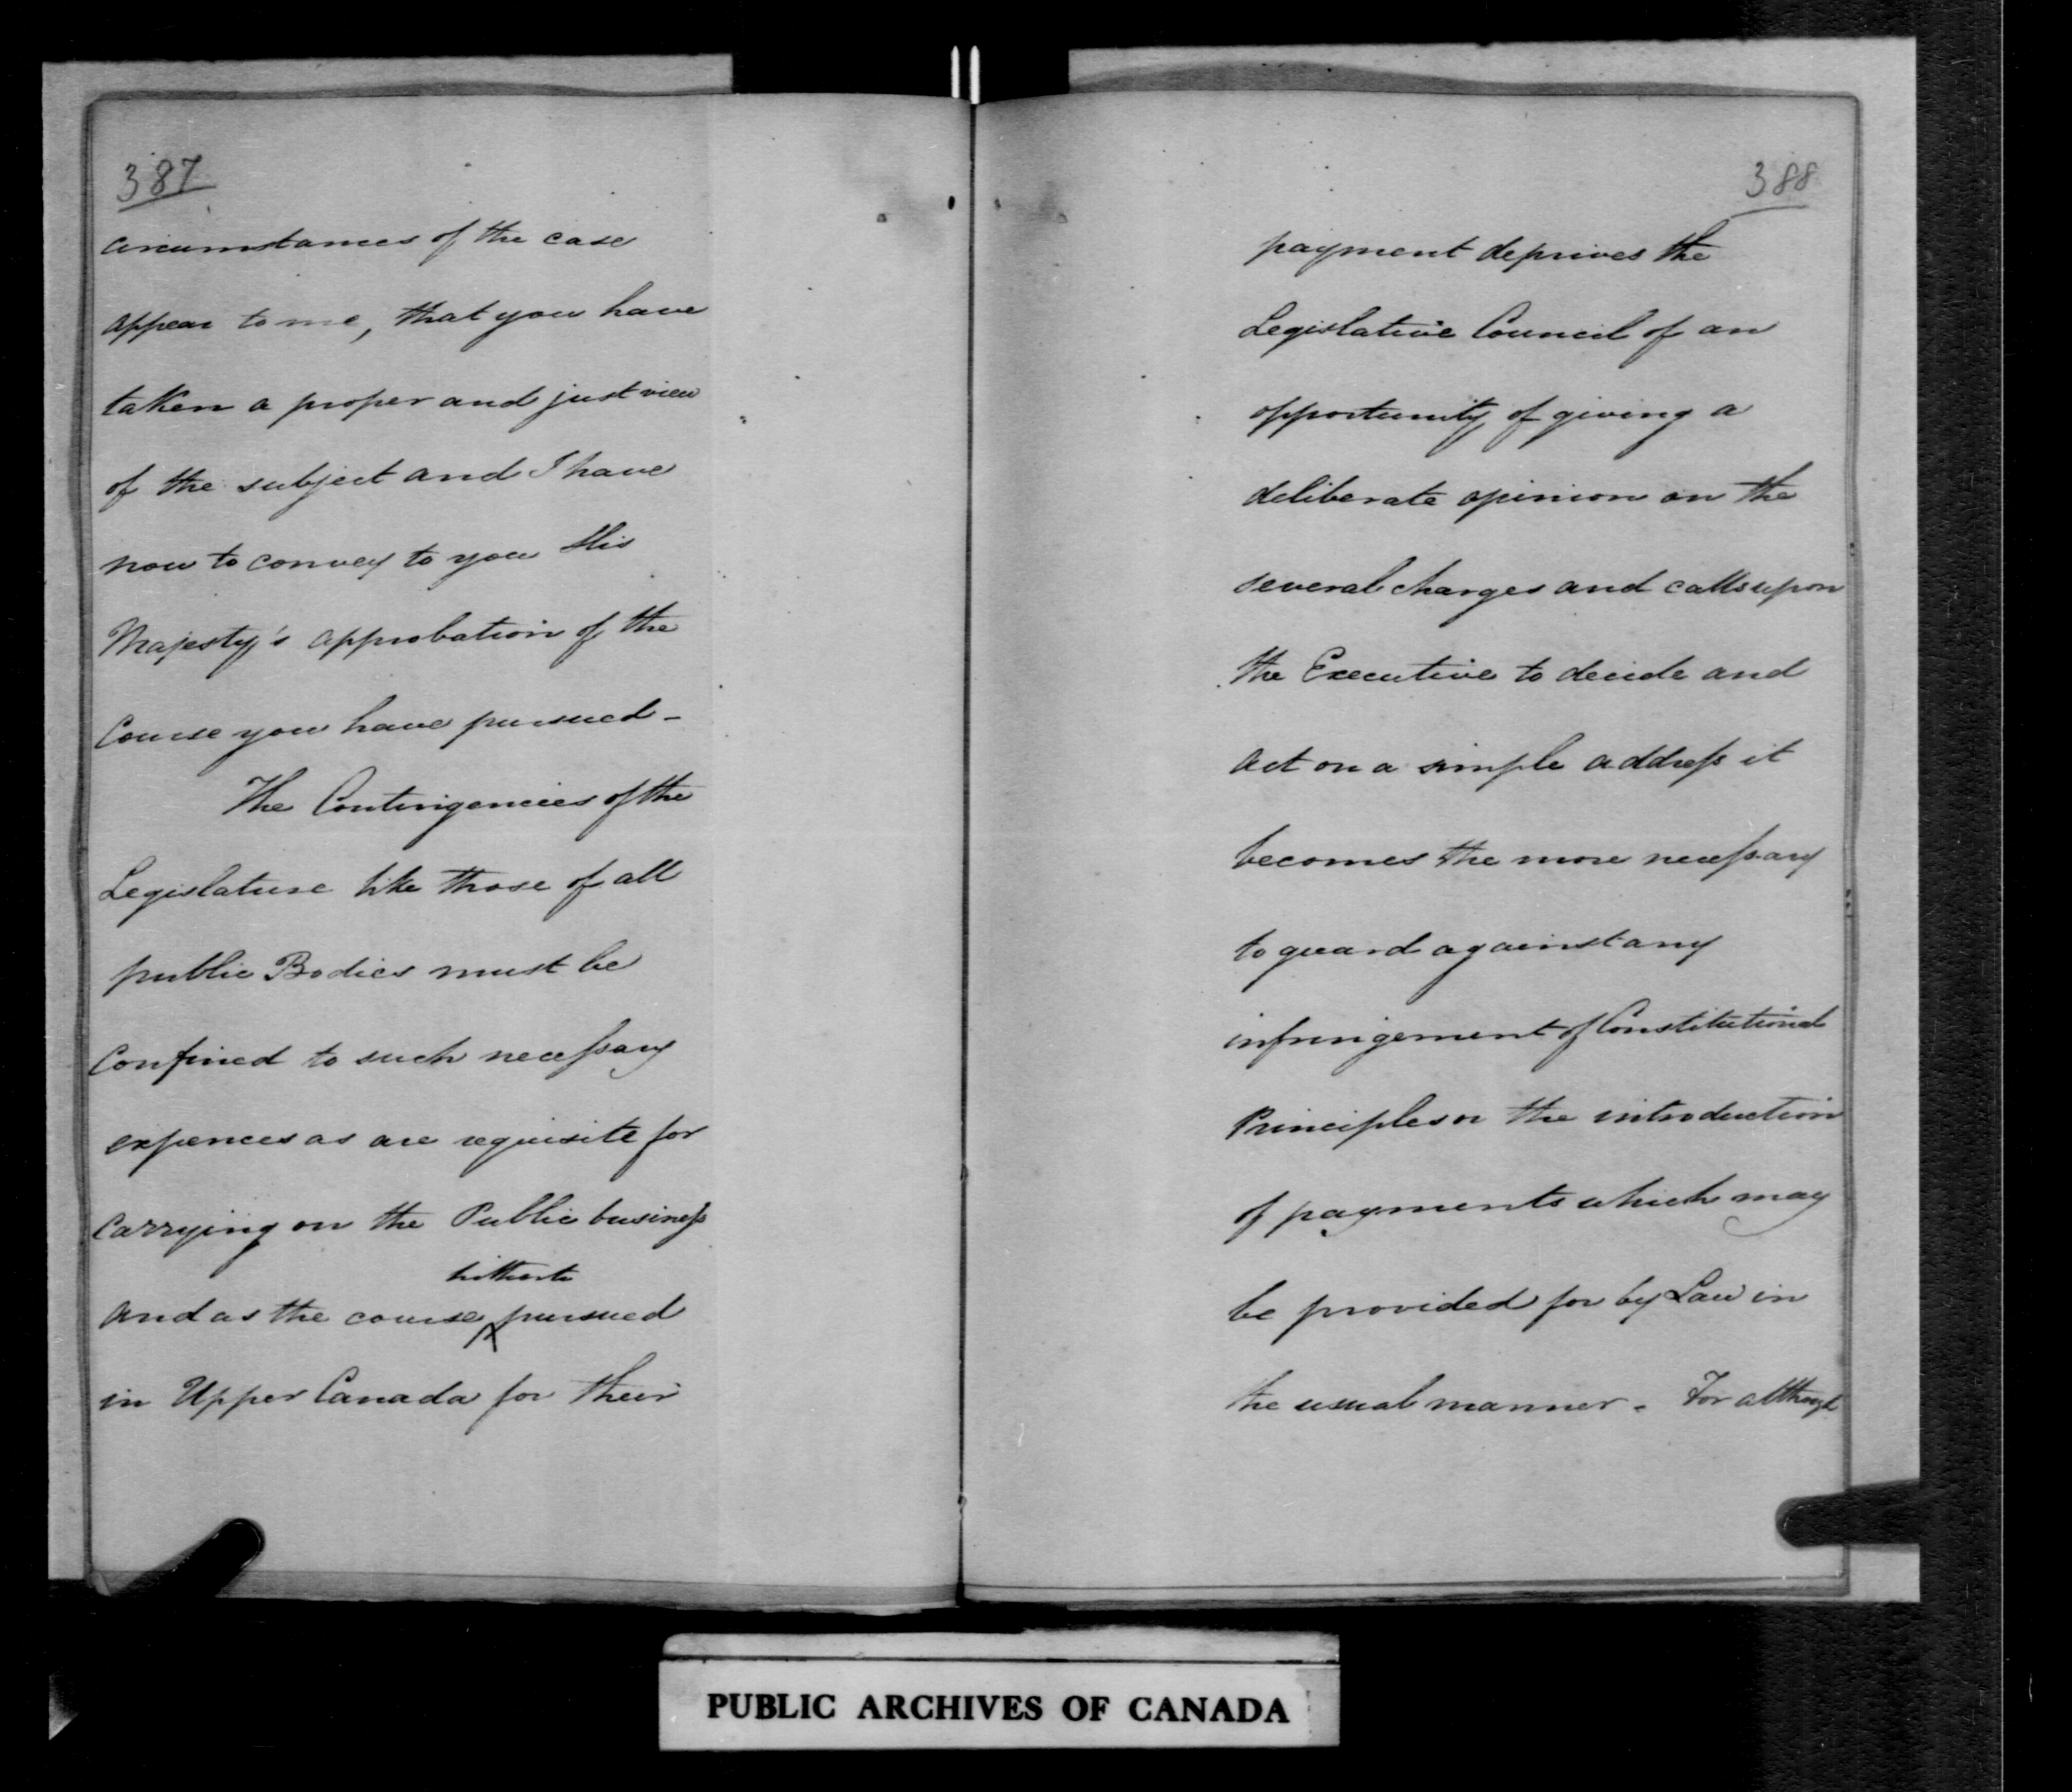 387
circumstances of the case
appear to me, that you have
taken a proper and just view
of the subject and I have
now to convey to you His
Majesty's approbation of the
Course you have pursued –
The Contingencies of the
Legislature like those of all
public Bodies must be
Confined to such necessary
expences as are requisite for
Carrying on the Public business
hitherto
and as the course ^ pursued
in Upper Canada for their
388
payment deprives the
Legislative Council of an
opportunity of giving a
deliberate opinion on the
several charges and calls upon
the Executive to decide and
act on a simple address it
becomes the more necessary
to guard against any
infringement of Constitutional
Principles or the introduction
of payments which may
be provided for by Law in
the usual manner. For although
PUBLIC ARCHIVES OF CANADA